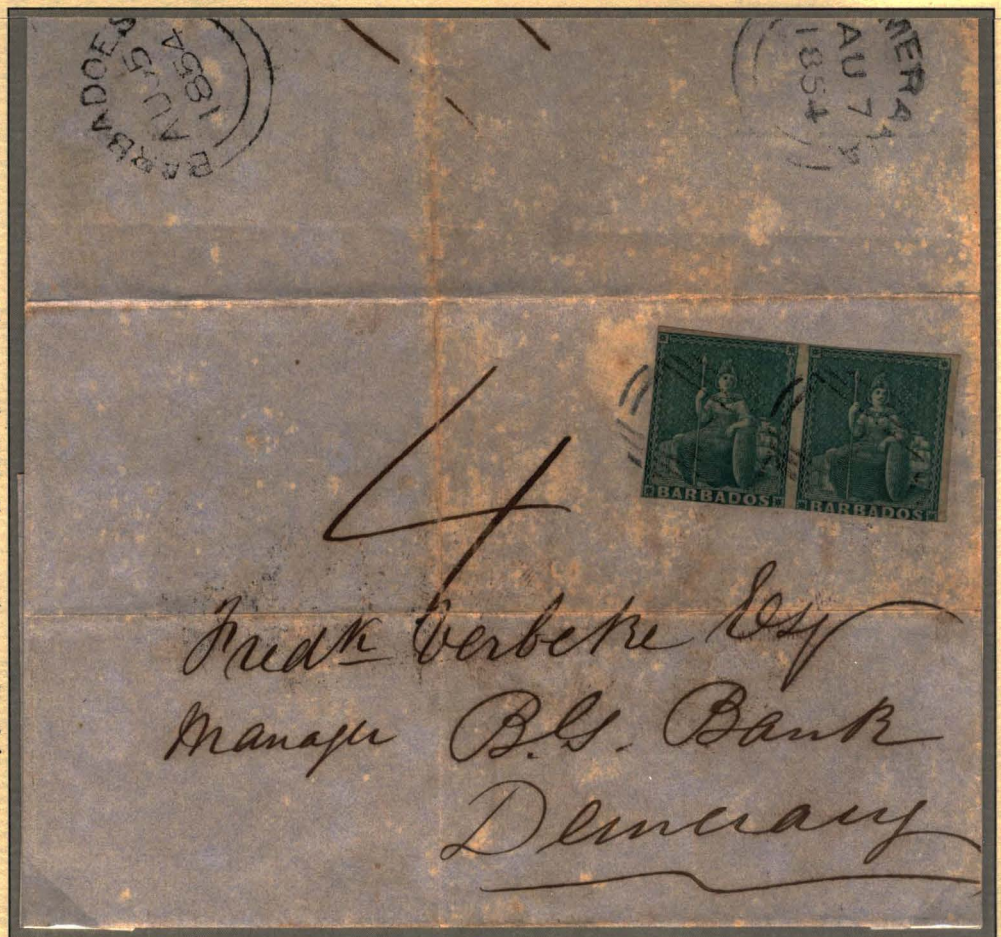 BARBADOES
AU 5
1854
MERARA
AU 7
1854
BARBADOS
BARBADOS
4
Fredk Verbeke Esq
Manager B.G. Bank
Demerary